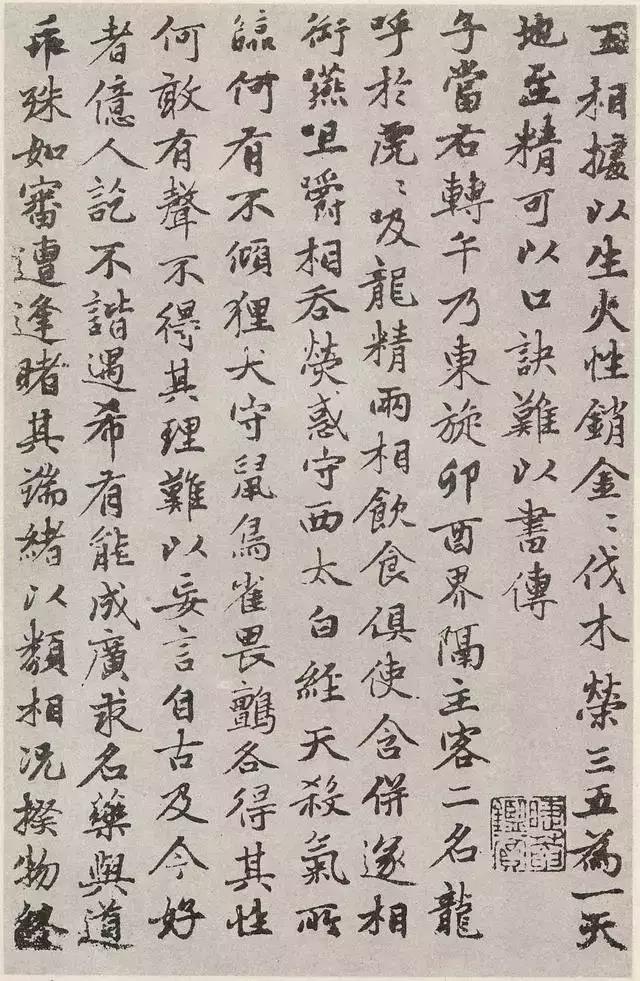 王相據以生火性銷金〻伐木榮三五為一天
地至精可以口訣難以書傳
子當右轉午乃東旋卯酉界隔主客二名龍
呼於虎〻吸龍精兩相飲食俱使含併遂相
銜嚥咀嚼相吞熒惑守西太白經天殺氣所
臨何有不傾狸犬守鼠鳥雀畏鸇各得其性
何敢有聲不得其理難以妄言自古及今好
者億人訖不諧遇希有能成廣求名藥與道
乖殊如審遭逢睹其端緒以類相況揆物終